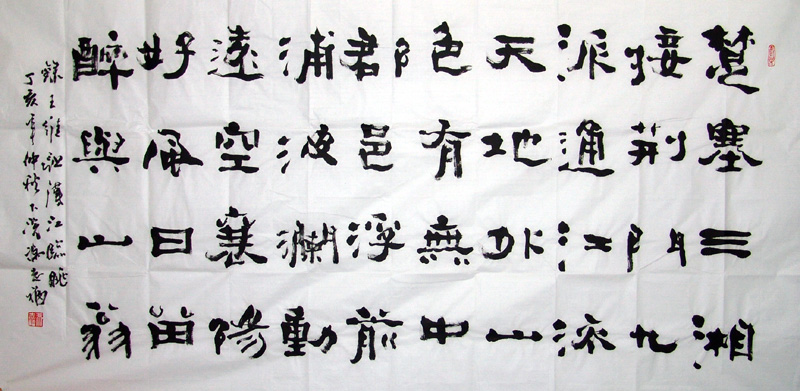 楚塞三湘
接荆門九
派通江流
天地外山
色有無中
郡邑浮前
浦波瀾動
遠空襄陽
好風日留
醉與山翁
錄王維詩漢江臨眺
丁亥年仲秋下浣